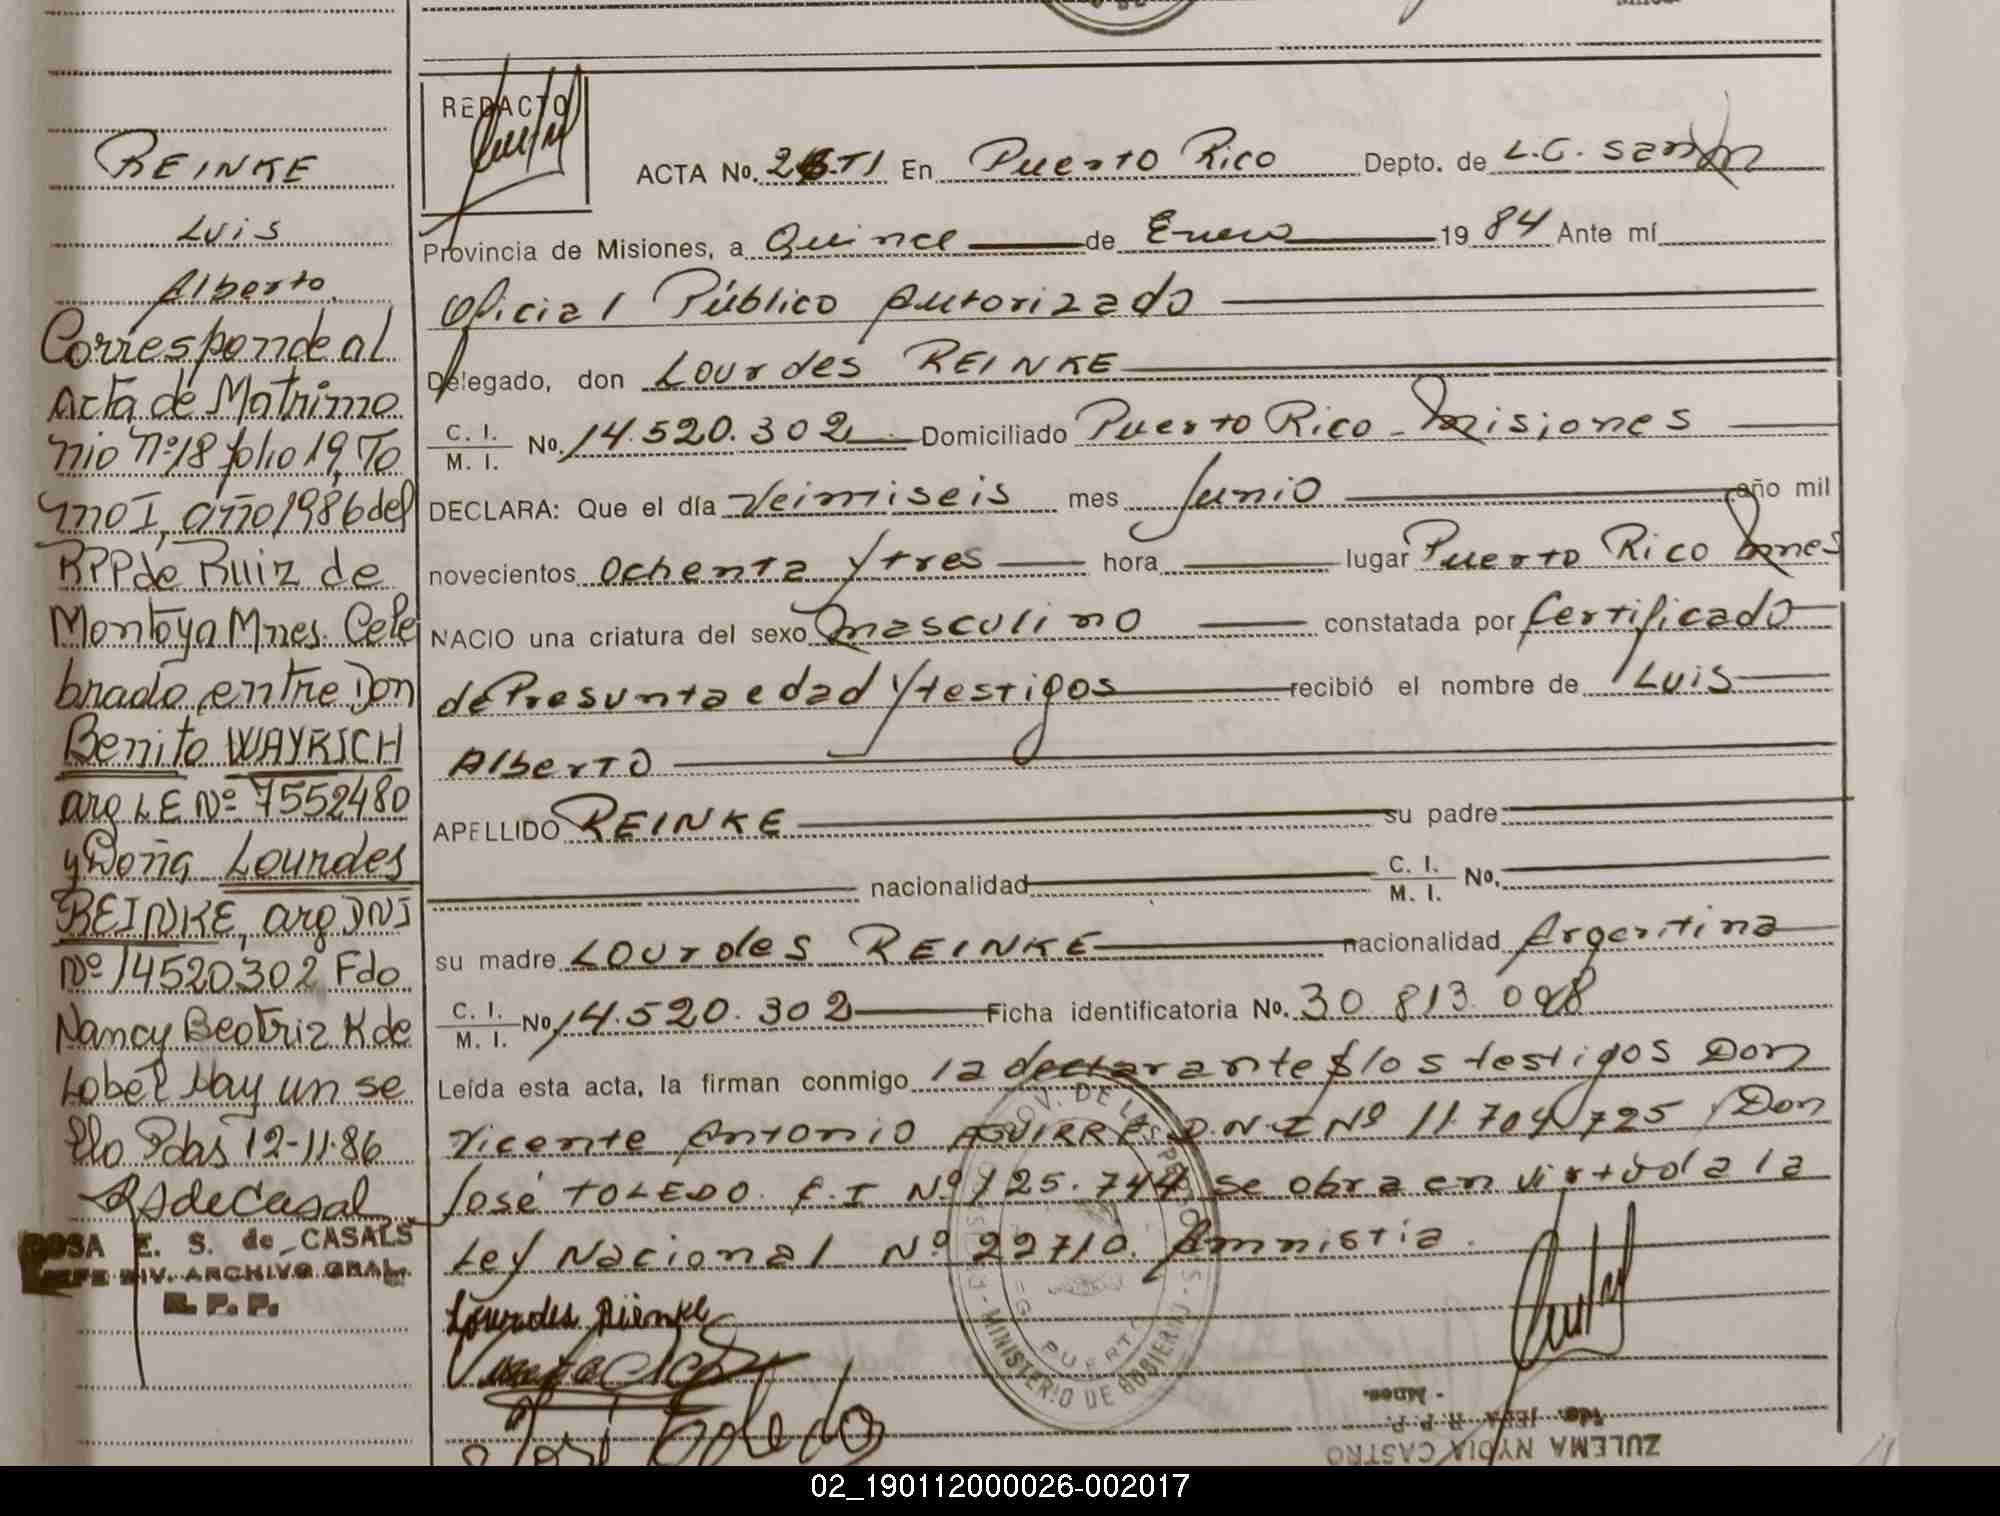 REINKE
Luis
Alberto
Corresponde al
acta de Matrimo
nio Nº 18 folio 19, To
mo I, año 1986 del
RPP de Ruiz de
Montoya Mnes. Cele
brado entre Don
Benito WAYRICH
arg LE Nº 7552480
y Doña Lourdes
REINKE, arg DNI
Nº 14520302 Fdo
Nancy Beatriz K de
Lobel Hay un se
llo Pdas 12-11-86
RSdeCasal
ROSA E. S. de CASALS
JEFE DIV. ARCHIVO GRAL.
R. P. P.
REDACTO
ACTA No. En Puerto Rico Depto. de L.G. San
Provincia de Misiones, a Quince de Enero 1984 Ante mí
Oficial Público Autorizado
Delegado, don Lourdes REINKE
C. I.
M. I. No. 14.520.302 Domiciliado Puerto Rico - Misiones
DECLARA: Que el día Veimiseis mes Junio año mil
novecientos ochenta y tres hora lugar Puerto Rico Mnes
NACIO una criatura del sexo masculino constatada por Certificado
de Presunta edad y testigos recibió el nombre de Luis
Alberto
APELLIDO REINKE su padre
nacionalidad C. I.
M. I. No.
su madre Lourdes REINKE nacionalidad Argentina
C. I.
M. I. No. 14.520.302 Ficha identificatoria No. 30.813.098
Leída esta acta, la firman conmigo la declarante y los testigos Don
Vicente Antonio AGUIRRE D.N.I Nº 11.704.725 y Don
José TOLEDO. C.I Nº 125.744 se obra en virtud a la
Ley Nacional Nº 22710. Amnistía.
Lourdes Rienke
José Toledo
MINISTERIO DE GOBIERNO
PUERT
Mnes.
JEFA R.P.P.
ZULEMA NYDIA CASTRO
02_190112000026-002017